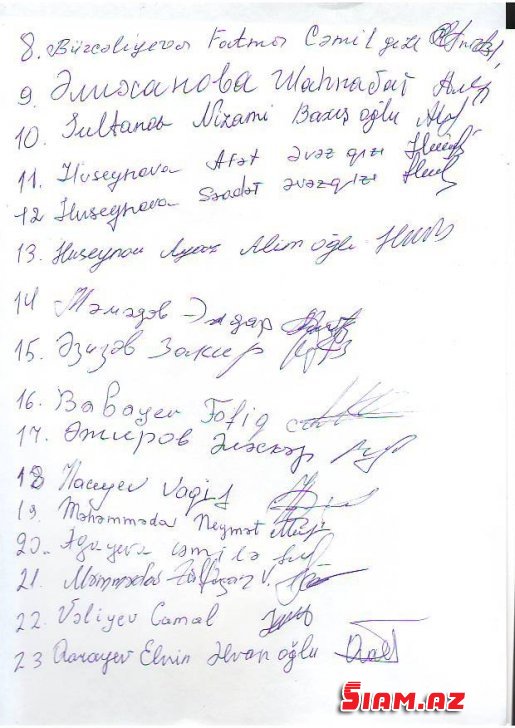 8. Bürcəliyeva Fatma Cəmil qızı
9. Әлиһасанова Шаһнабат
10. Sultanov Nizami Baxış oğlu
11. Huseynova Afət Əvəz qızı
12 Huseynova Səadət Əvəz qızı
13. Huseynov Ayaz Alim oğlu
14 Мәмәдов Әлдар
15. Әзизов Закир
16. Babayev Tofiq
17. Әмиров Әләскәр
18 Vaqif
19. Məhəmmədov Neymət
20. Ağayeva Cəmilə
21. Məmmədov V.
22. Vəliyev Camal
23 Qarayev Elvin Əlvan oğlu
SIAM.AZ